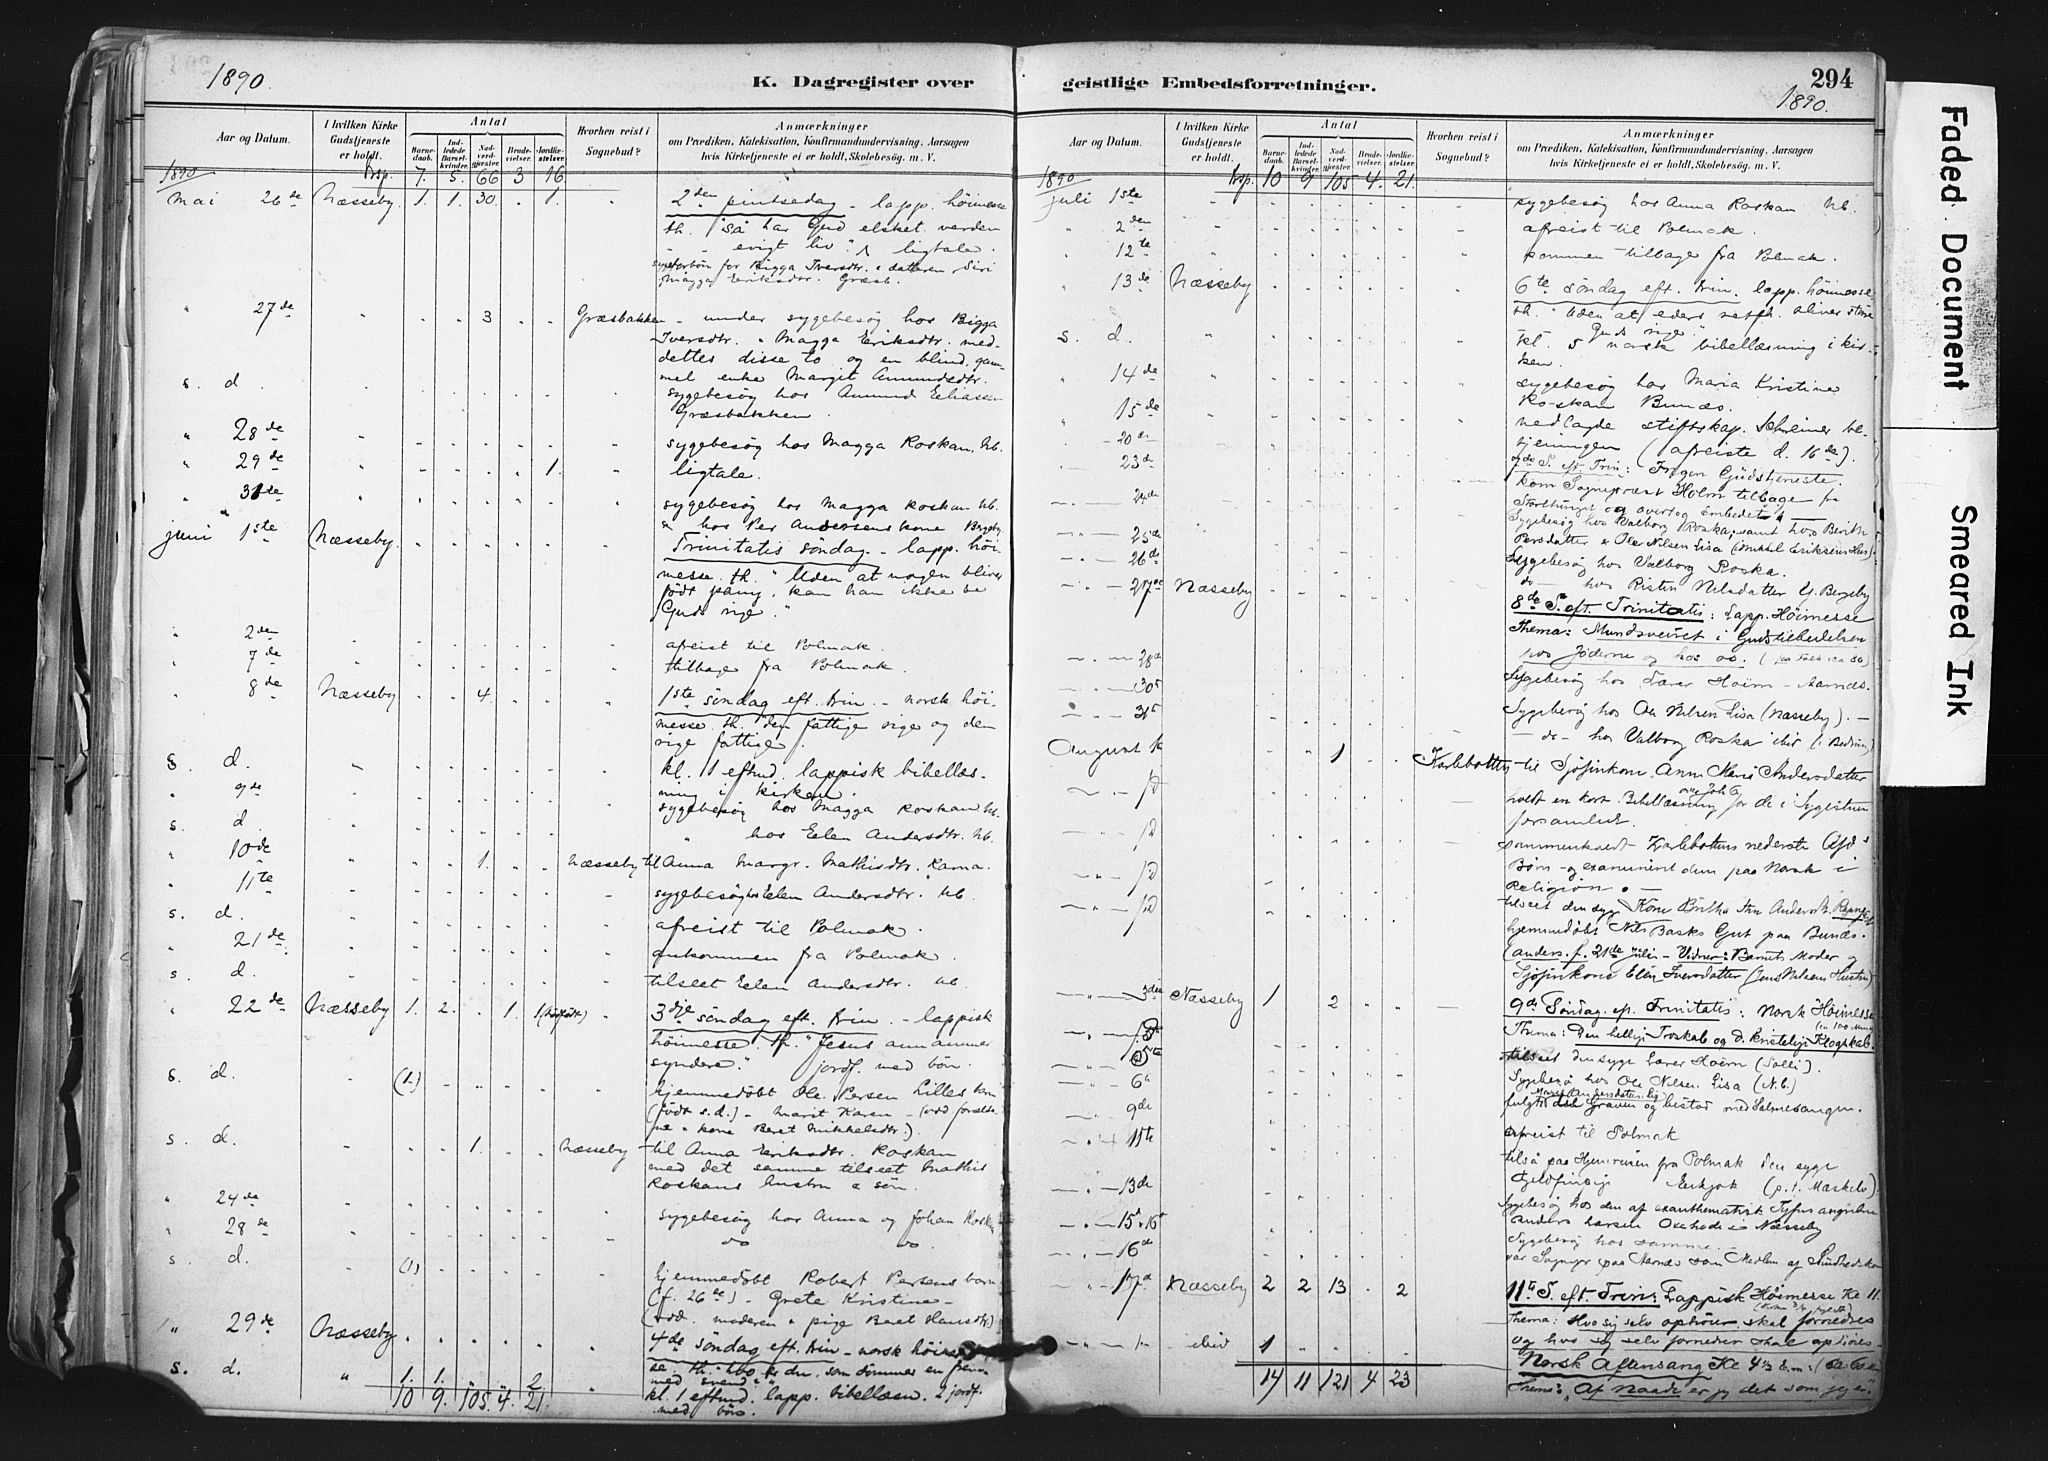 1890.
K. Dagregister over
Aar og Datum.
I hvilken Kirke Gudstjeneste er holdt.
Antal
Barne-daab.
Ind-ledede Barsel-kvinder.
Nad-verd-gjester.
Brude-vielser.
Jordfæ-stelser.
Hvorhen reist i Sognebud?
Anmærkninger
om Prædiken, Katekisation, Konfirmandundervisning, Aarsagen
hvis Kirketjeneste ei er holdt, Skolebesøg. m. V.
1890 Trsp. 7. 5. 66 3 16.
Mai 26de Næsseby. 1. 1. 30. 1. 2den pintsedag - lapp. höimesse
th. "Så har Gud elsket verden
- - evigt liv". ligtale.
sygeforbön for Bigga Iversdtr. & datteren Siri
Magga Eriksdtr. Græsb.
" 27de 3 Græsbakken - under sygebesøg hos Bigga
Iversdtr. & Magga Eriksdtr. med-
deltes disse to og en blind, gam-
mel enke Margit Amundsdtr.
s. d. sygebesøg hos Amund Eliassen
Græsbakken.
" 28de sygebesøg hos Magga Roskan. Nb.
" 29de 1. ligtale.
" 31te sygebesøg hos Magga Roskan Nb.
& hos Per Andersens kone Bergeby
juni 1ste Næsseby. Trinitatis söndag - lapp. höi-
messe. th. "Uden at nogen bliver
född påny, kan han ikke se
Guds rige."
" 2den afreist til Polmak.
" 7de tilbage fra Polmak.
" 8de Næsseby 4. 1ste söndag eft. trin. - norsk höi-
messe th. "den fattige rige og den
rige fattige.
s. d. kl. 1 eftmd. lappisk bibellæs-
ning i kirken.
" 9de sygebesøg hos Magga Roskan Nb.
s. d. " hos Elen Andersdtr. Nb.
" 10de 1. Næsseby til Anna Margr. Mathisdtr. Rama.
" 11te sygebesøg hos Elen Andersdtr. Nb.
s. d. afreist til Polmak.
" 21de ankommen fra Polmak.
s. d. tilseet Elen Andersdtr. Nb.
" 22de Næsseby 1. 2. 1. 3dje söndag eft. trin. - lappisk
höimesse. th. "Jesus annammer
syndere." jordf. med bön.
s. d. (1.) hjemmedöbt Ole Persen Lilles barn
(född s. d.) - Marit Karen -
kone Beret Mikkelsdtr.).
s. d. 1. Næsseby til Anna Eriksdtr. Roskan
med det samme tilseet Mathis
Roskans hustru & sön.
" 24de
" 28de sygebesøg hos Anna og Johan Roska
do do.
s. d. (1) hjemmedöbt Robert Persens barn
(f. 26de) - Grete Kristine -
moderen & pige Beret Hansdtr.)
" 29de Næsseby. 4de söndag eft. trin - norsk höimes-
se. th. "hvo er du, som dömmer en frem-
med svend".
s. d. " 1. 1. 2 kl. 1 eftmd. lapp. bibellæsn. 2 jordf.
med bön.
10 9. 105. 4. 21.
geistlige Embedsforretninger.
294
1890.
Aar og Datum.
I hvilken Kirke Gudstjeneste er holdt.
Antal
Barne-daab.
Ind-ledede Barsel-kvinder.
Nad-verd-gjester.
Brude-vielser.
Jordfæ-stelser.
Hvorhen reist i Sognebud?
Anmærkninger
om Prædiken, Katekisation, Konfirmandundervisning, Aarsagen
hvis Kirketjeneste ei er holdt, Skolebesøg. m. V.
1890 Trsp. 10 9 105. 4. 21.
juli 1ste sygebesøg hos Anna Roskan Nb.
" 2den afreist til Polmak.
" 12te kommen tilbage fra Polmak.
" 13de Næsseby 6te söndag eft. trin. lapp. höimesse
th. "Uden at eders retfh. bliver större
- Guds rige".
s. d. kl. 5 norsk bibellæsning i kir-
ken.
" 14de sygebesøg hos Maria Kristine
Roskan Bunæs.
" 15de nedlagde stiftskap. Schreiner be-
tjeningen (afreiste d. 16de).
20de 7de S. eft. Trin: Ingen Gudstjeneste.
23de kom Sognepræst Holm tilbage fra
Storthinget og overtog Embedet.
24de Sygebesøg hos Valborg Roska, samt hos Berith
Persdatter & Ole Nilsen Lisa (Mikkel Eriksens Hus).
25de Sygebesøg hos Valborg Roska.
26de do - hos Ristin Nilsdatter N. Bergeby
27de Næsseby 8de S. eft. Trinitatis: Lapp. Höimesse
Thema: Mundsveiret i Gudstilbedelsen
hos Jöderne og hos os.
28de Sygebesøg hos Lærer Holm - Aarnes.
30te Sygebesøg hos Ole Nilsen Lisa (Næsseby). -
31te - do - hos Valborg Roska ibid (i Bedring)
August 1 Karlebotten til Sjöfinkone Ann Marit Andersdatter
holdt en kort Bibellæsning for de i Sygestuen
forsamlede.
sammenkaldt Karlbottens nederste
Börn - og examineret dem paa Norsk i
Religion. -
tilseet den syge Kone Britha
hjemmedöbt Nils Basks Gut paa Bunæs.
(Anders. f. 21de Juli - Vidner: Barnets Moder og
Sjöfinkone Elen Iversdatter (Jens Nilsens Hustru)
3die Næsseby 1 2 9de Söndag ef. Trinitatis: Norsk Höimesse
Thema: Den hellige Troskab og d. kristelige Klogskab.
5te tilseet den syge Lærer Holm (Salli).
6te Sygebesøg hos Ole Nilsen Lisa (N.b.)
9de fulgte til Graven og bistod med Salmesangen.
11te afreist til Polmak
13de tilså paa Hjemreisen fra Polmak den syge
(p. t. Maskelv).
15de & 16de Sygebesøg hos den af exanthematisk Tyfus angrebne
Anders Larsen Oxehode i Næsseby
16de Sygebesøg hos samme. -
var Sognepr paa Aarnes som Medlem af Sundhedskom
17de Næsseby 2 2 13 2 11te S. eft. Trin: Lappisk Höimesse Kl 11.
Thema: Hvo sig selv ophöier, skal fornedres
og hvo sig selv fornedrer skal ophöies -
ibid 1 Norsk Aftensang Kl 4½ Em:
Thema: "Af Naade er jeg det som jeg er."
14 11 121 4 23
Faded Document
Smeared Ink